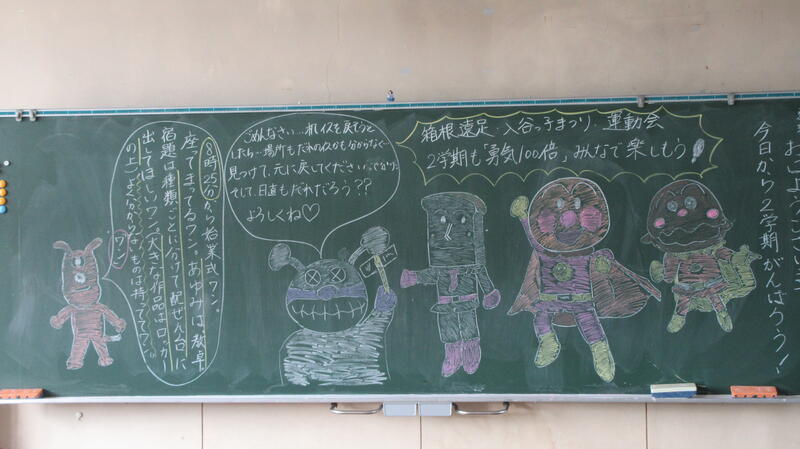 おはようございます
今日から2学期がんばろう!
箱根遠足・入谷っ子まつり・運動会
2学期も「勇気100倍」みんなで楽しもう!
ごめんなさい…オレイスを戻そうと
したら…場所もだれのイスかも分からなく…
見つけて、元に戻してください。
そして、日直もだれだろう??
よろしくね♡
8時25分から始業式ワン。
座ってまっててるワン。あゆみは教卓
宿題は種類ごとに分けて配ぜん台に
出してほしいワン。大きな作品はロッカー
の上。よく分からないものは持っててワン。
ワン